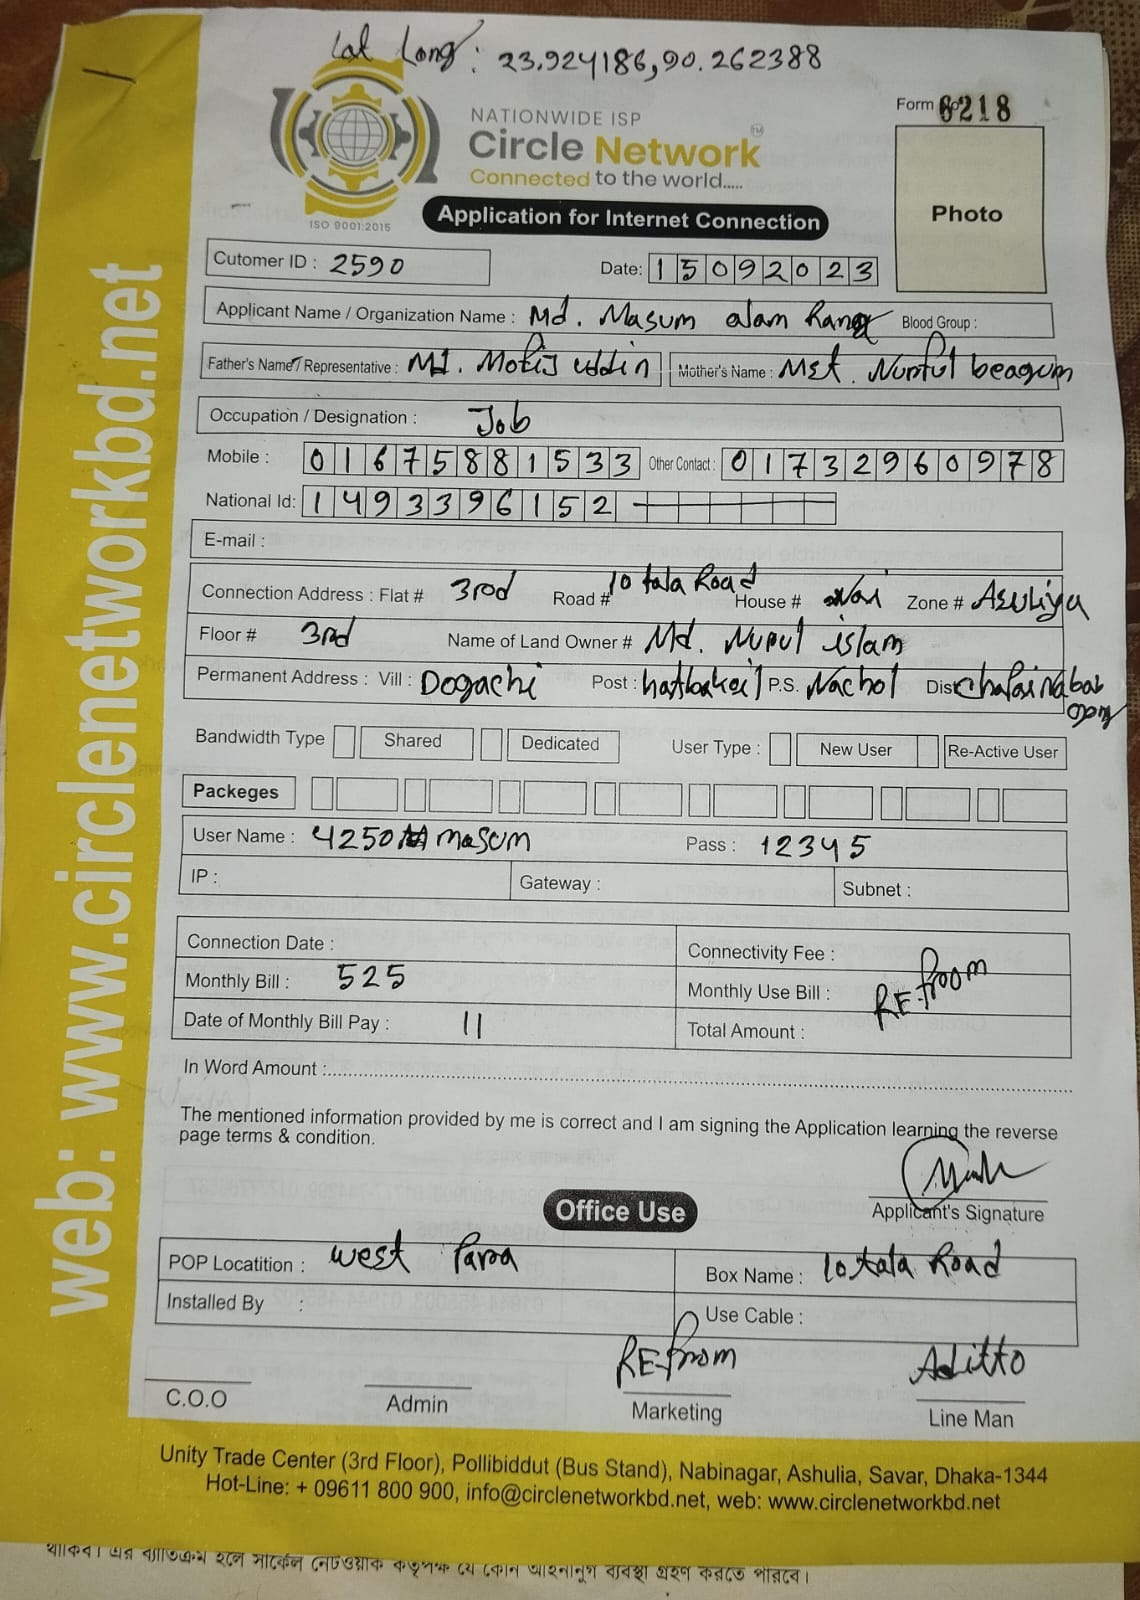 Lat Long: 23.924186,90.262388
NATIONWIDE ISP
Circle Network
TM
Connected to the world.....
ISO 9001:2015
Form 218
Photo
Application for Internet Connection
Cutomer ID : 2590
Date: 15092023
Applicant Name / Organization Name : Md. Masum alam Rana
Blood Group :
Father's Name / Representative : Md. Mofij uddin
Mother's Name : Mst. Nurful beagum
Occupation / Designation : Job
Mobile : 01675881533 Other Contact : 01732960978
National Id: 1493396152
E-mail :
Connection Address : Flat # 3rod Road # 10 tala Road House # Zone # Asuliya
Floor # 3rd Name of Land Owner # Md. Nurul islam
Permanent Address : Vill : Dogachi Post : hatbakoil P.S. Nachol Dist chapai Nabab gonj
Bandwidth Type Shared Dedicated User Type : New User Re-Active User
Packeges
User Name : 4250 masum Pass : 12345
IP : Gateway : Subnet :
Connection Date : Connectivity Fee :
Monthly Bill : 525 Monthly Use Bill : RE-from
Date of Monthly Bill Pay : 11 Total Amount :
In Word Amount :
The mentioned information provided by me is correct and I am signing the Application learning the reverse
page terms & condition.
Applicant's Signature
Office Use
POP Locatition : west Para Box Name : 10 tala Road
Installed By : Use Cable :
RE-from Aditto
C.O.O Admin Marketing Line Man
Unity Trade Center (3rd Floor), Pollibiddut (Bus Stand), Nabinagar, Ashulia, Savar, Dhaka-1344
Hot-Line: + 09611 800 900, info@circlenetworkbd.net, web: www.circlenetworkbd.net
থাকিব। এর ব্যতিক্রম হলে সার্কেল নেটওয়ার্ক কতৃপক্ষ যে কোন আইনানুগ ব্যবস্থা গ্রহণ করতে পারবে।
web: www.circlenetworkbd.net